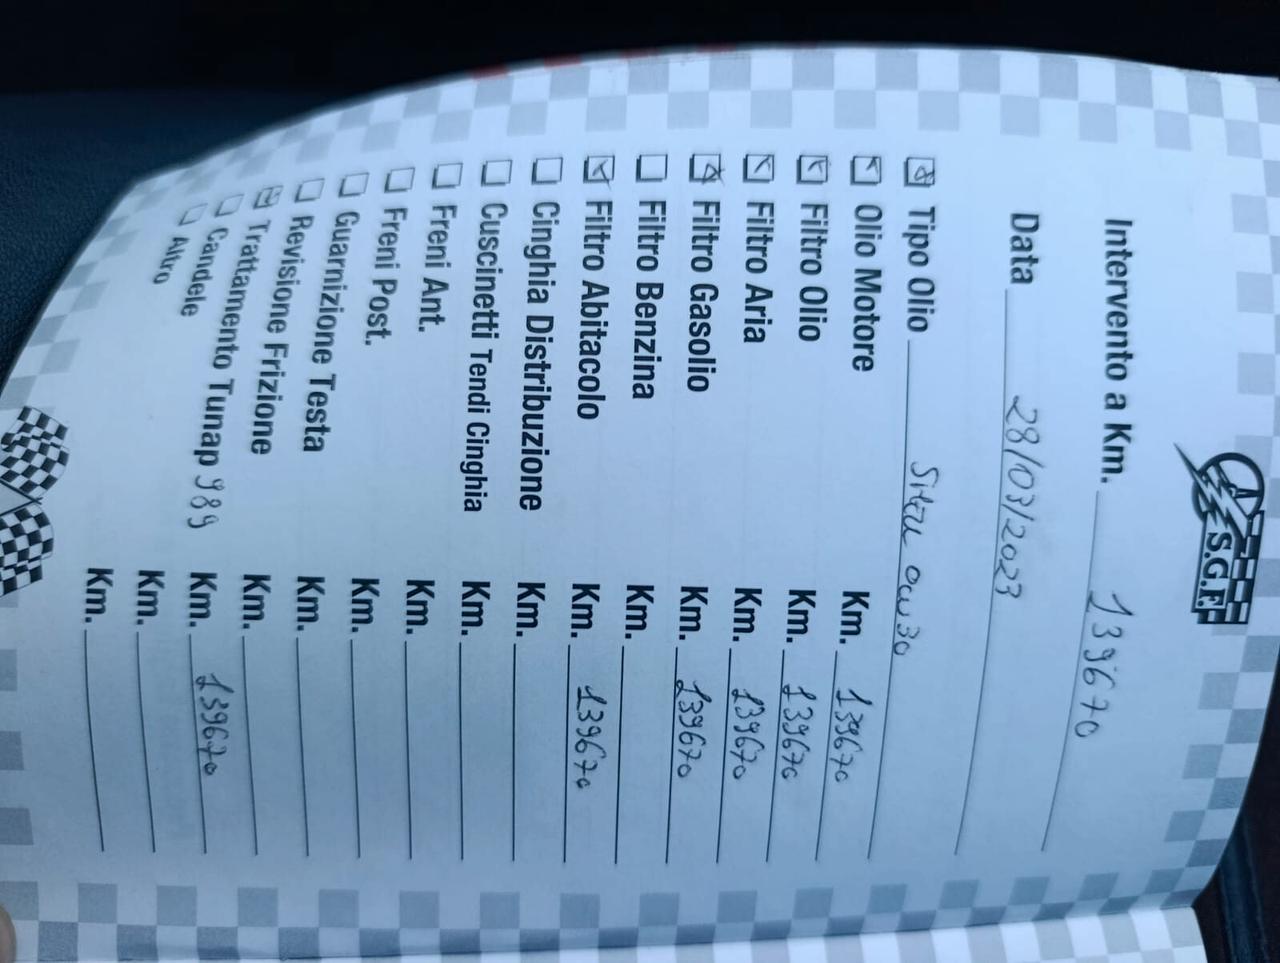 S.G.F.
Intervento a Km. 139670
Data 28/03/2023
Tipo Olio 0W30
Olio Motore Km. 139670
Filtro Olio Km. 139670
Filtro Aria Km. 139670
Filtro Gasolio Km. 139670
Filtro Benzina Km.
Filtro Abitacolo Km. 139670
Cinghia Distribuzione Km.
Cuscinetti Tendi Cinghia Km.
Freni Ant. Km.
Freni Post. Km.
Guarnizione Testa Km.
Revisione Frizione Km.
Trattamento Tunap 989 Km. 139670
Candele Km.
Altro Km.